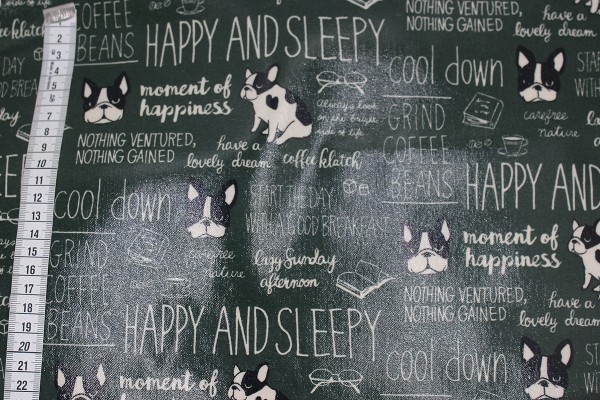 COFFEE
BEANS
HAPPY AND SLEEPY
NOTHING VENTURED,
NOTHING GAINED
have a
lovely dream
coffee klatch
cool down
moment of
happiness
always look
on the bright
side of life
GRIND
COFFEE
BEANS
carefree
nature
NOTHING VENTURED,
NOTHING GAINED
have a
lovely dream
coffee klatch
HAPPY AND
cool down
START THE DAY
WITH A GOOD BREAKFAST
GRIND
COFFEE
BEANS
carefree
nature
lazy Sunday
afternoon
moment of
happiness
NOTHING VENTURED,
NOTHING GAINED
have a
lovely dream
HAPPY AND SLEEPY
cool down
moment of
2
3
4
5
7
8
9
10
11
12
13
14
15
16
17
18
19
20
21
22